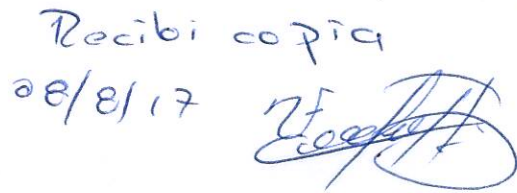 Recibi copia
08/8/17